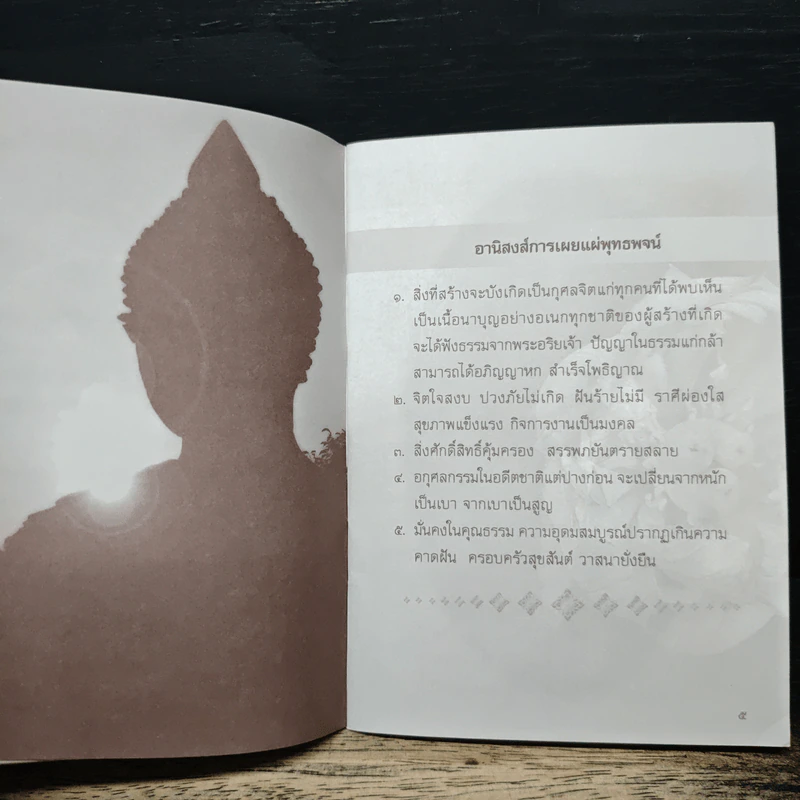 อานิสงส์การเผยแผ่พุทธพจน์
๑. สิ่งที่สร้างจะบังเกิดเป็นกุศลจิตแก่ทุกคนที่ได้พบเห็น
เป็นเนื้อนาบุญอย่างอเนกทุกชาติของผู้สร้างที่เกิด
จะได้ฟังธรรมจากพระอริยเจ้า ปัญญาในธรรมแก่กล้า
สามารถได้อภิญญาหก สำเร็จโพธิญาณ
๒. จิตใจสงบ ปวงภัยไม่เกิด ฝันร้ายไม่มี ราศีผ่องใส
สุขภาพแข็งแรง กิจการงานเป็นมงคล
๓. สิ่งศักดิ์สิทธิ์คุ้มครอง สรรพภยันตรายสลาย
๔. อกุศลกรรมในอดีตชาติแต่ปางก่อน จะเปลี่ยนจากหนัก
เป็นเบา จากเบาเป็นสูญ
๕. มั่นคงในคุณธรรม ความอุดมสมบูรณ์ปรากฏเกินความ
คาดฝัน ครอบครัวสุขสันต์ วาสนายั่งยืน
๕